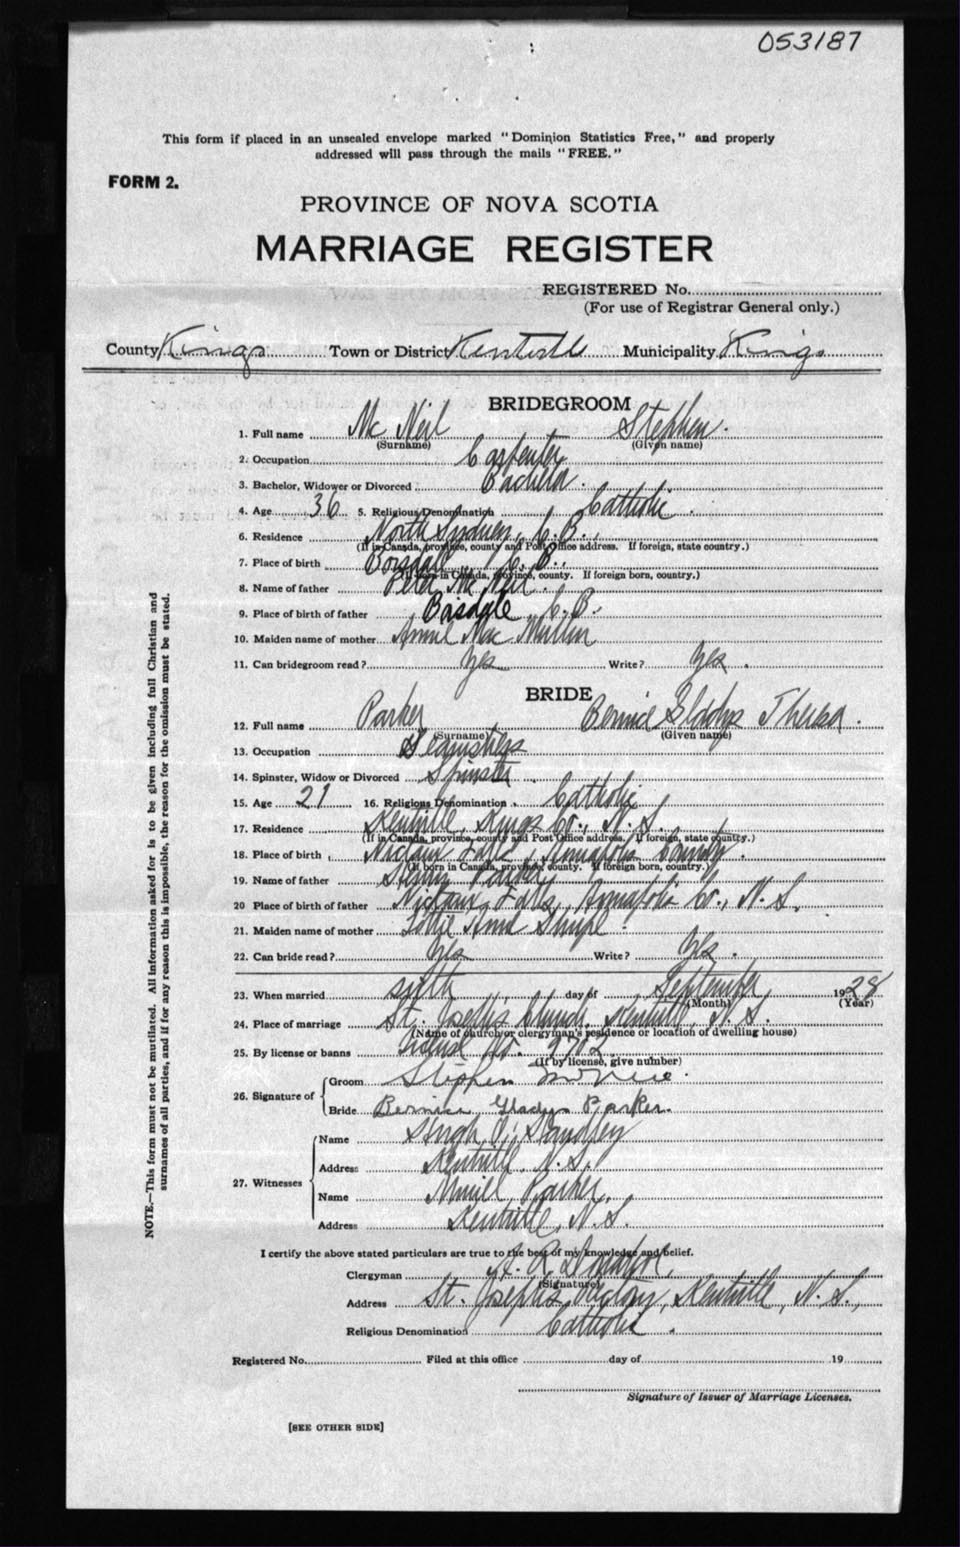 053187
This form if placed in an unsealed envelope marked "Dominion Statistics Free," and properly
addressed will pass through the mails "FREE."
FORM 2.
PROVINCE OF NOVA SCOTIA
MARRIAGE REGISTER
REGISTERED No.
(For use of Registrar General only.)
County Kings Town or District Kentville Municipality Kings
BRIDEGROOM
1. Full name Mc Neil Stephen.
(Surname) (Given name)
2. Occupation Carpenter
3. Bachelor, Widower or Divorced Bachelor.
4. Age 36 5. Religious Denomination Catholic.
6. Residence North Sydney, C.B.,
(If in Canada, province, county and Post Office address. If foreign, state country.)
7. Place of birth C.B.,
(If born in Canada, province, county. If foreign born, country.)
8. Name of father Peter Mc Neil.
9. Place of birth of father C.B.
10. Maiden name of mother Annie Mac Mullin
11. Can bridegroom read? Yes Write? Yes.
BRIDE
12. Full name Parker Bernice Gladys Theresa.
(Surname) (Given name)
13. Occupation Seamstress
14. Spinster, Widow or Divorced Spinster.
15. Age 21 16. Religious Denomination Catholic
17. Residence Kentville, Kings Co., N.S.
(If in Canada, province, county and Post Office address. If foreign, state country.)
18. Place of birth Nictaux Falls, Annapolis County.
(If born in Canada, province, county. If foreign born, country.)
19. Name of father Parker
20 Place of birth of father Nictaux Falls, Annapolis Co., N.S.
21. Maiden name of mother Lottie Anna
22. Can bride read? Yes Write? Yes.
23. When married sixth day of September 1928
(Month) (Year)
24. Place of marriage St. Joseph's Church, Kentville, N.S.
(Name of church or clergyman's residence or location of dwelling house)
25. By license or banns License No.
(If by license, give number)
26. Signature of Groom Stephen McNeil.
Bride Bernice Gladys Parker.
27. Witnesses Name
Address Kentville, N.S.
Name Muriel Parker,
Address Kentville, N.S.
I certify the above stated particulars are true to the best of my knowledge and belief.
Clergyman
(Signature)
Address St. Joseph's Rectory, Kentville, N.S.,
Religious Denomination Catholic.
Registered No. Filed at this office day of 19
Signature of Issuer of Marriage Licenses.
[SEE OTHER SIDE]
NOTE.—This form must not be mutilated. All information asked for is to be given including full Christian and
surnames of all parties, and if for any reason this is impossible, the reason for the omission must be stated.